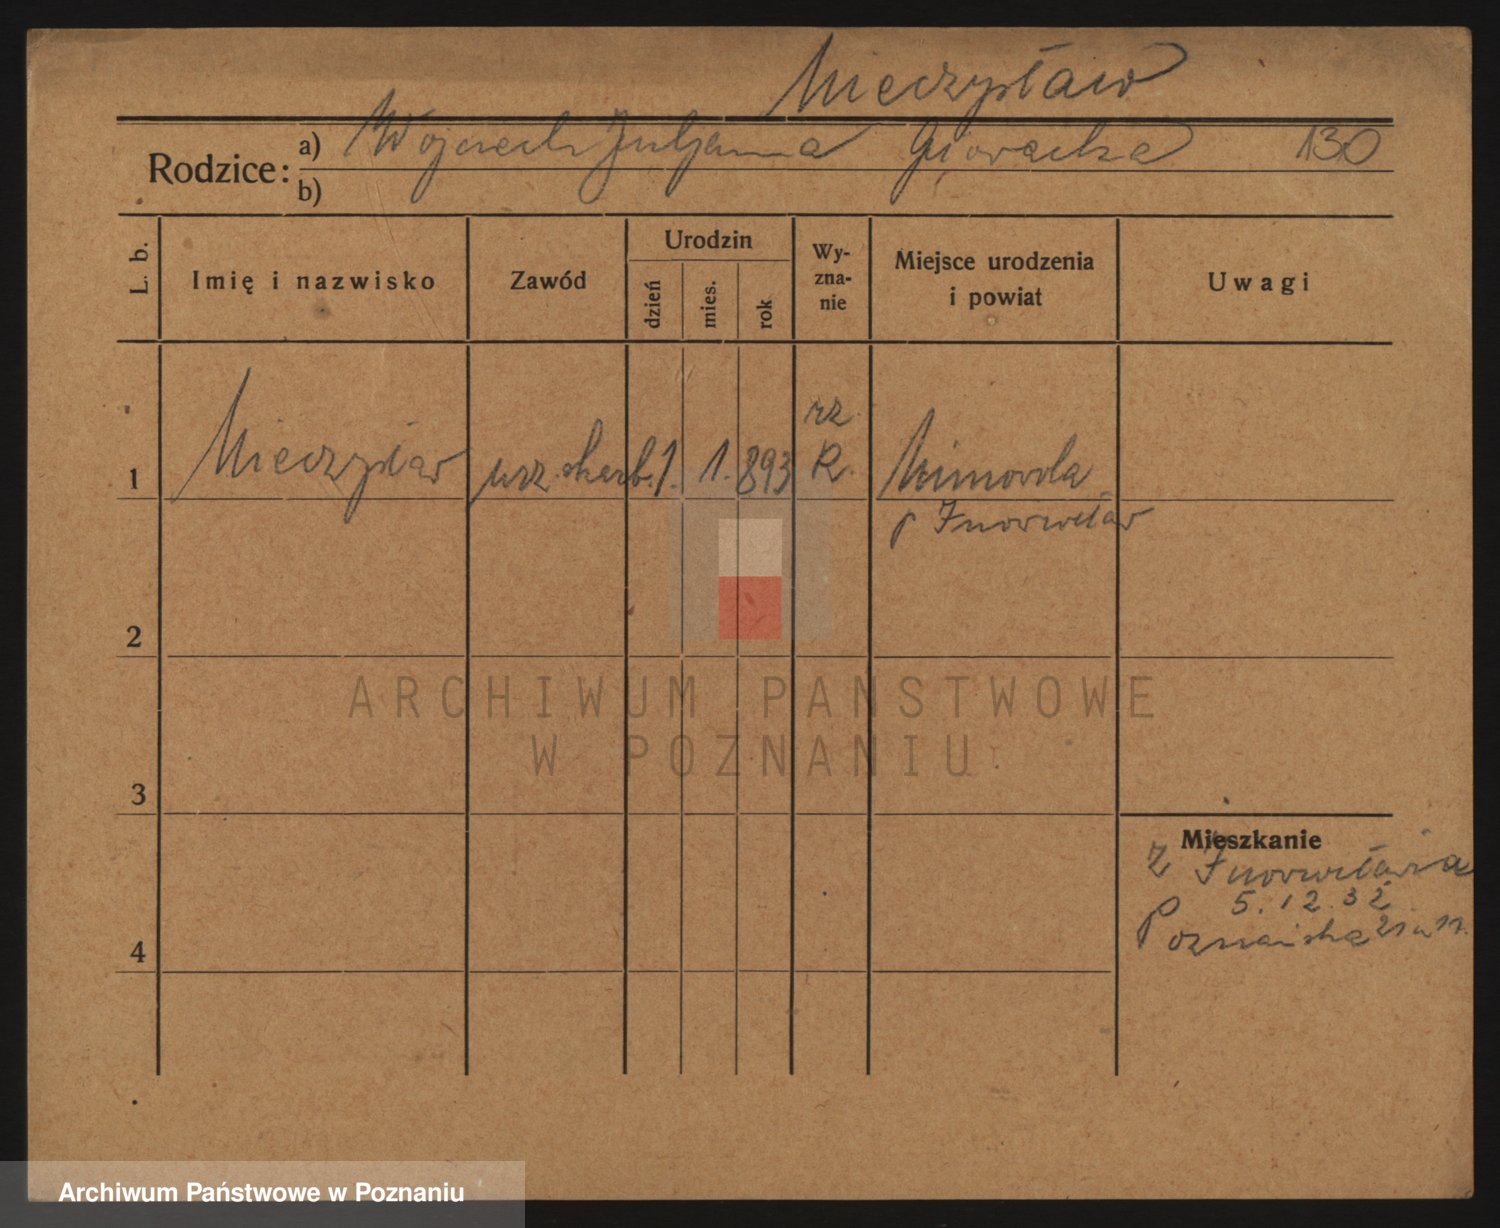 Mieczysław
Rodzice: a) Wojciech Juljanna Górecka 130
b)
L. b. Imię i nazwisko Zawód Urodzin dzień mies. rok Wy-zna-nie Miejsce urodzenia i powiat Uwagi
rz
1 Mieczysław urz. skarb. 1. 1. 893 K.
p Inowrocław
2
ARCHIWUM PAŃSTWOWE
W POZNANIU
3
Mieszkanie
z Inowrocławia
5.12.32
Poznańska
4
Archiwum Państwowe w Poznaniu